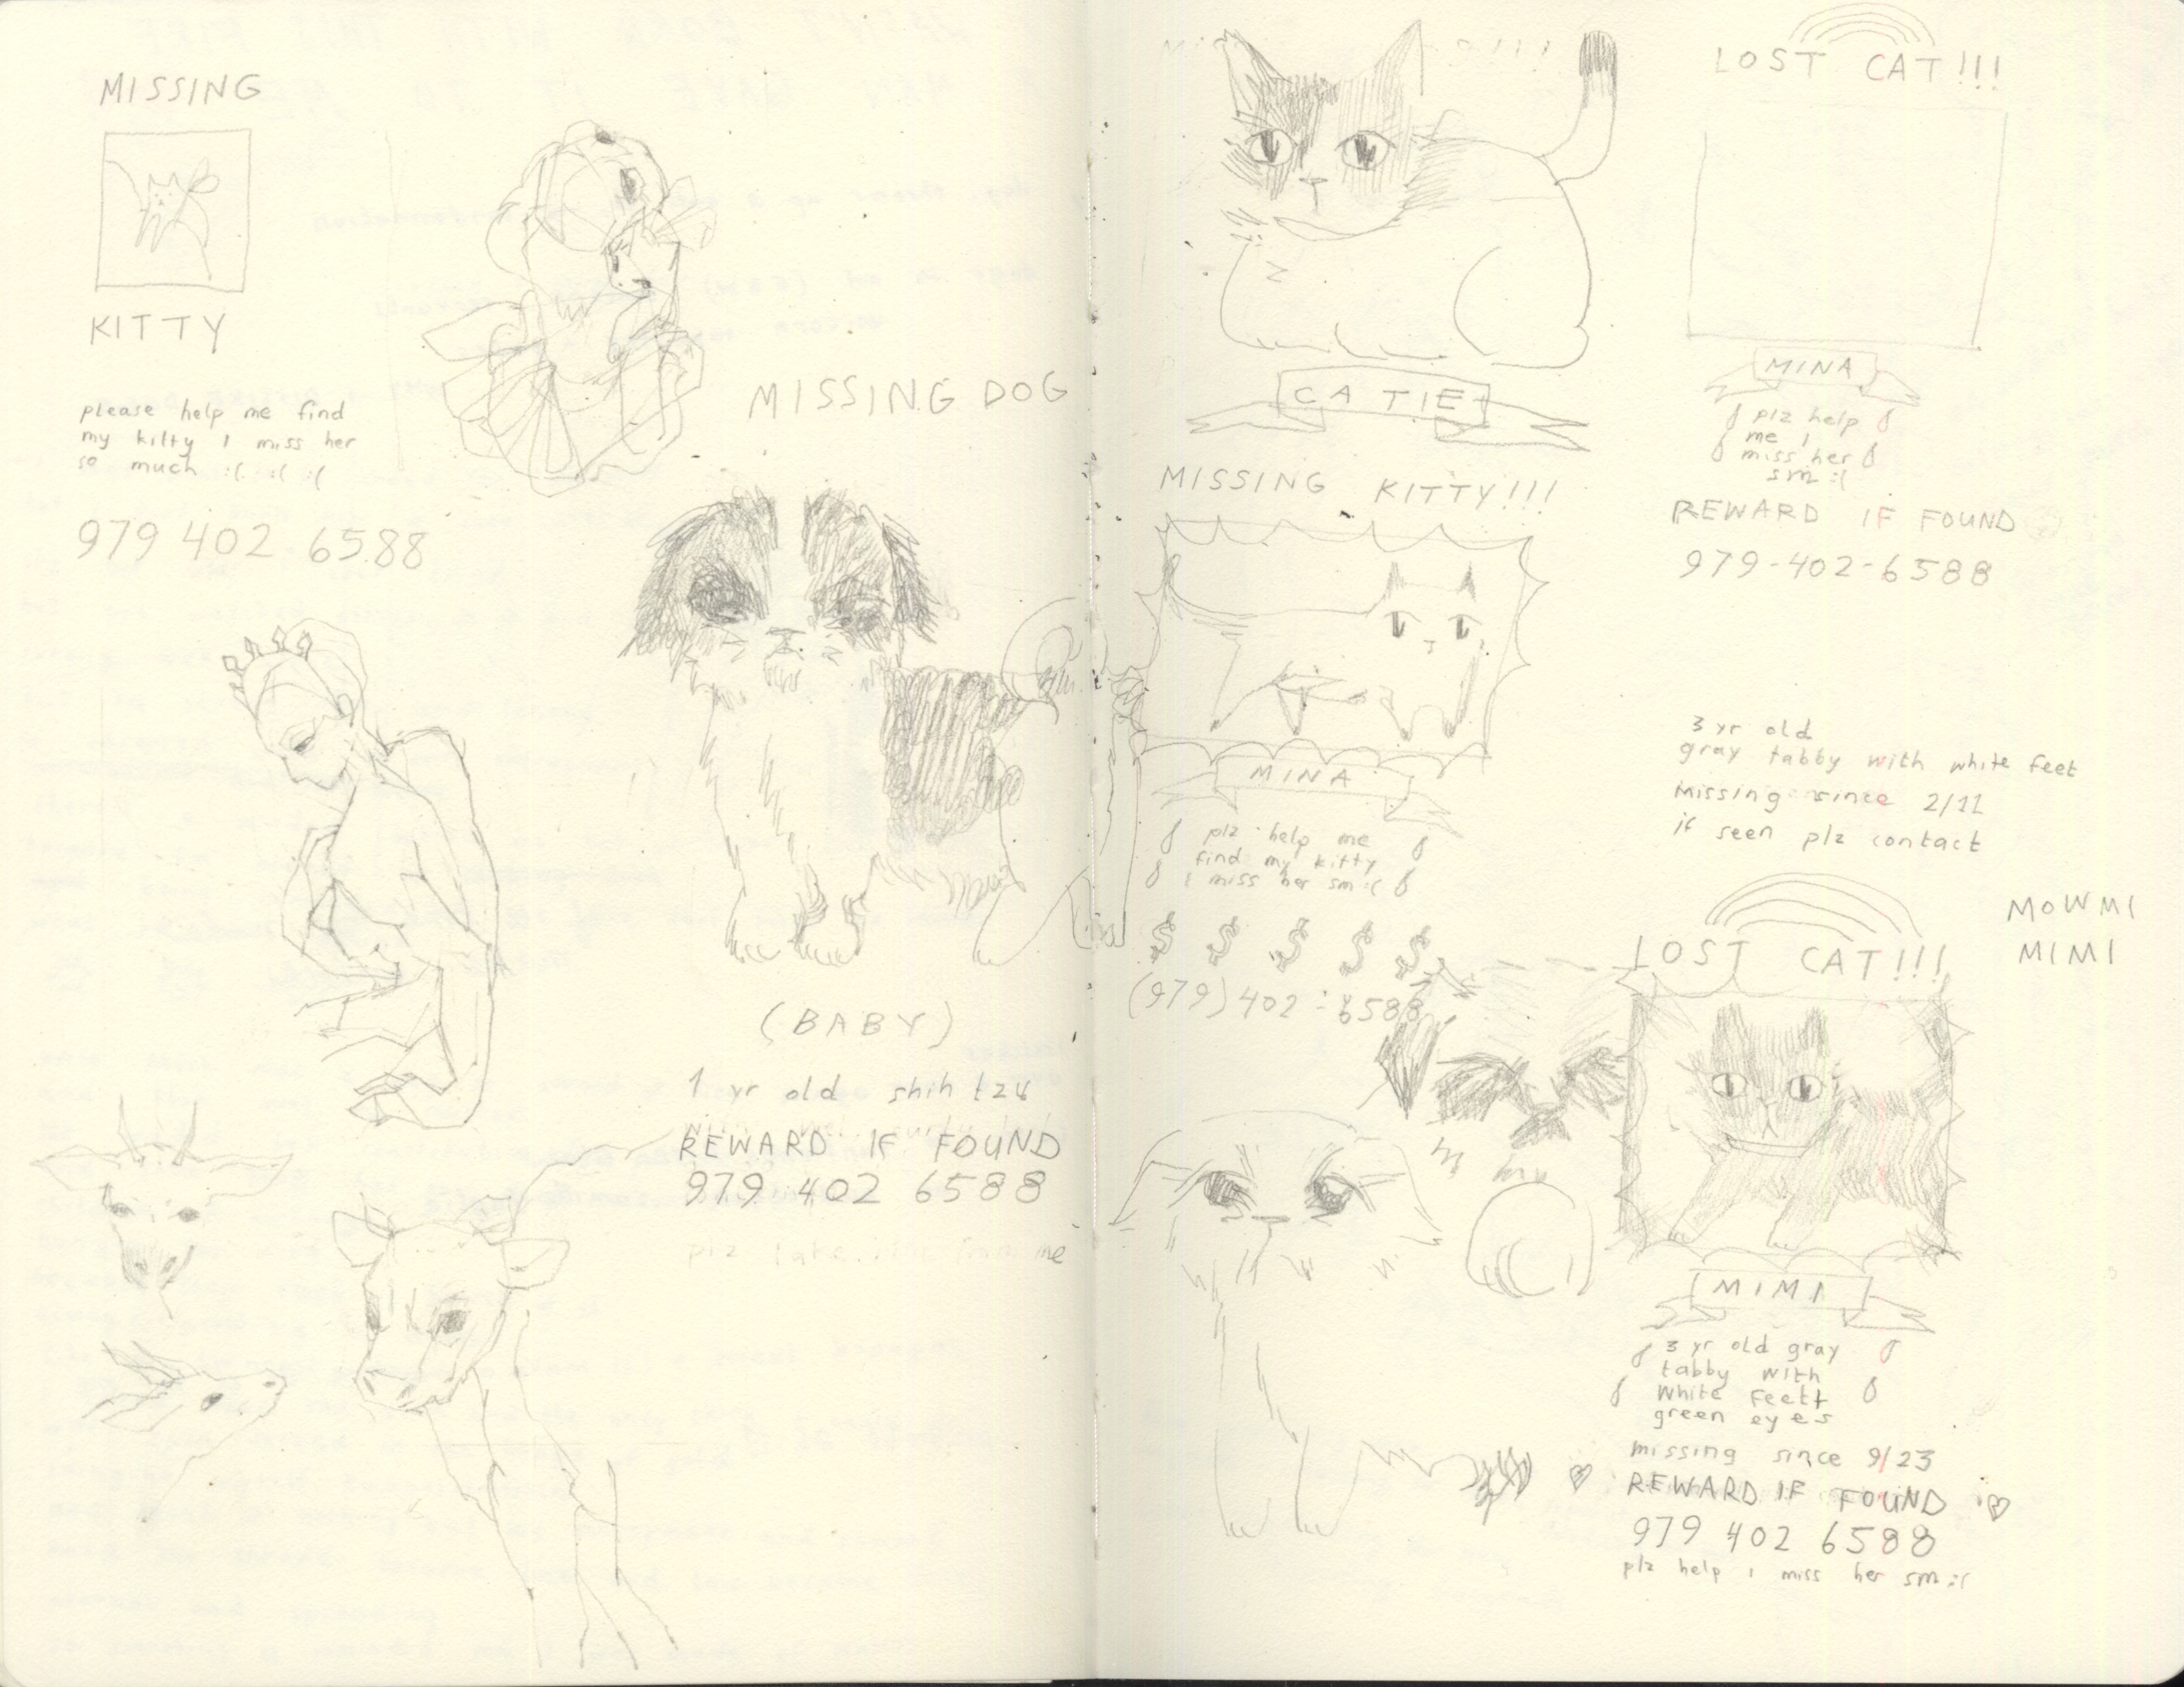 MISSING
KITTY
please help me find
my kitty I miss her
so much :( :( :(
979 402 6588
MISSING DOG
(BABY)
1 yr old shih tzu
REWARD IF FOUND
979 402 6588
plz me
CATIE
MISSING KITTY!!!
MINA
plz help me
find my kitty
I miss her sm :(
$ $ $ $ $
(979) 402-6588
LOST CAT!!!
MINA
plz help
me I
miss her
sm :(
REWARD IF FOUND
979-402-6588
3 yr old
gray tabby with white feet
missing since 2/11
if seen plz contact
MOWMI
MIMI
LOST CAT!!!
MIMI
3 yr old gray
tabby with
white feet +
green eyes
missing since 9/23
REWARD IF FOUND
979 402 6588
plz help I miss her sm :(